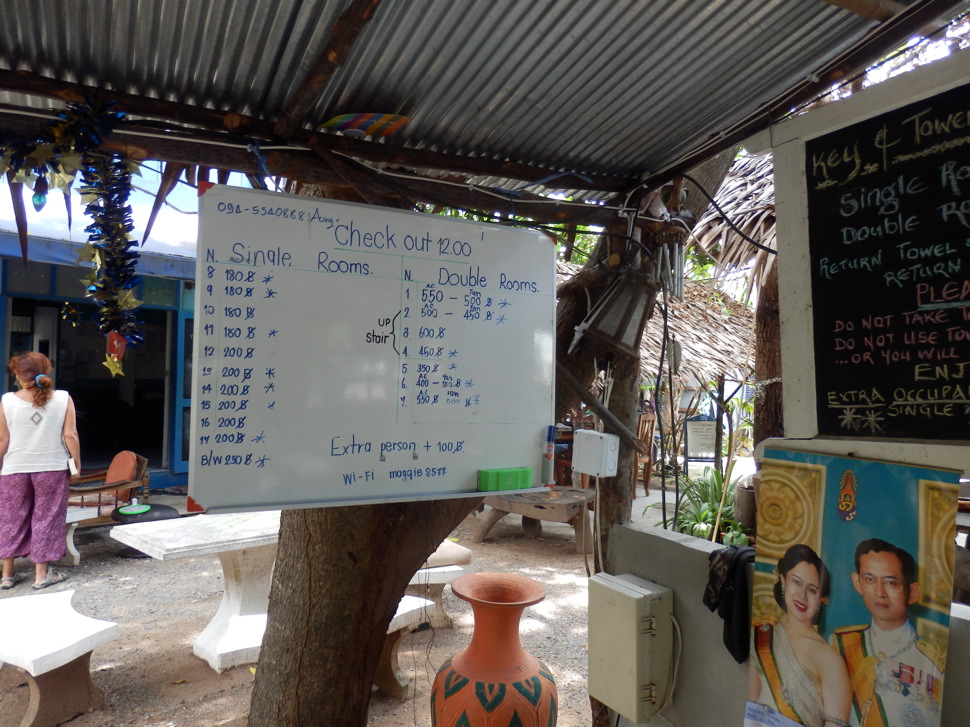 094-5540868 Ang=
Check out 12.00
N. Single Rooms.
8 180 ฿ *
9 180 ฿ *
10 180 ฿
11 180 ฿ *
12 200 ฿
13 200 ฿ *
14 200 ฿ *
15 200 ฿ *
16 200 ฿
17 200 ฿ *
B/W 250 ฿ *
N. Double Rooms.
AC Fan
1 550 - 500 ฿ *
AC Fan
2 500 - 450 ฿ *
up
stair
3 600 ฿
4. 450 ฿ *
5. 350 ฿ *
AC
6. 400 - ฿ *
AC Fan
7. 550 ฿ ฿ *
Extra person + 100 ฿.
Wi-Fi maggie8577
KEY & TOWE
Single Ro
Double R
RETURN TOWEL
RETURN
PLEA
DO NOT TAKE T
DO NOT USE TOW
...OR YOU WILL
ENJ
EXTRA OCCUPA
** SINGLE